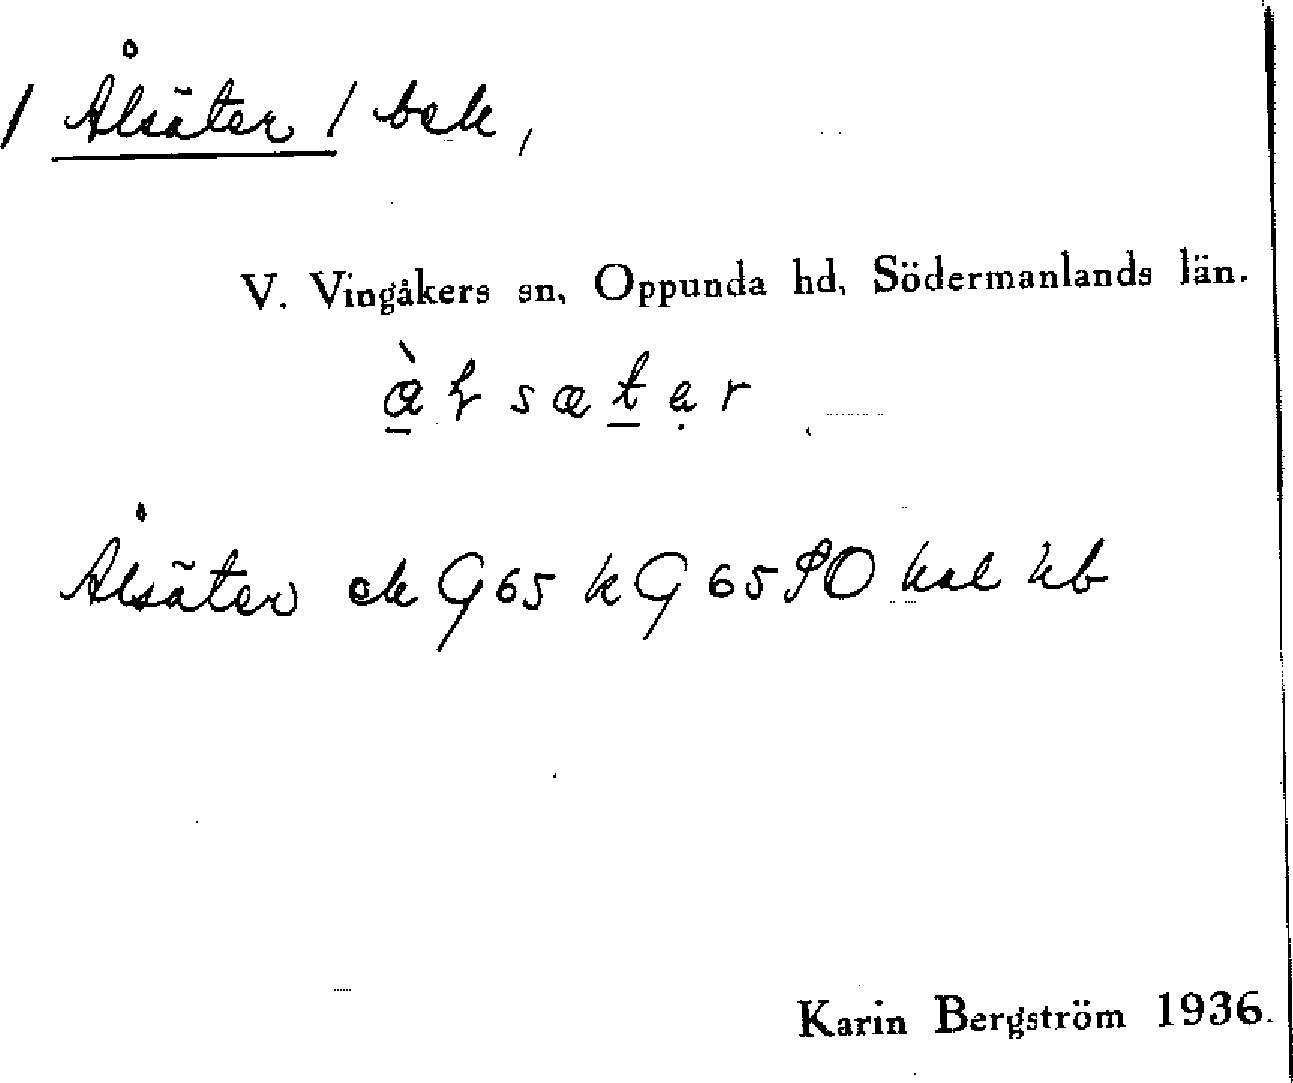 / Ålsäter / bek,
V. Vingåkers sn, Oppunda hd, Södermanlands län.
Ålsäter ek G 65 k G 65 PO kal kb
Karin Bergström 1936.